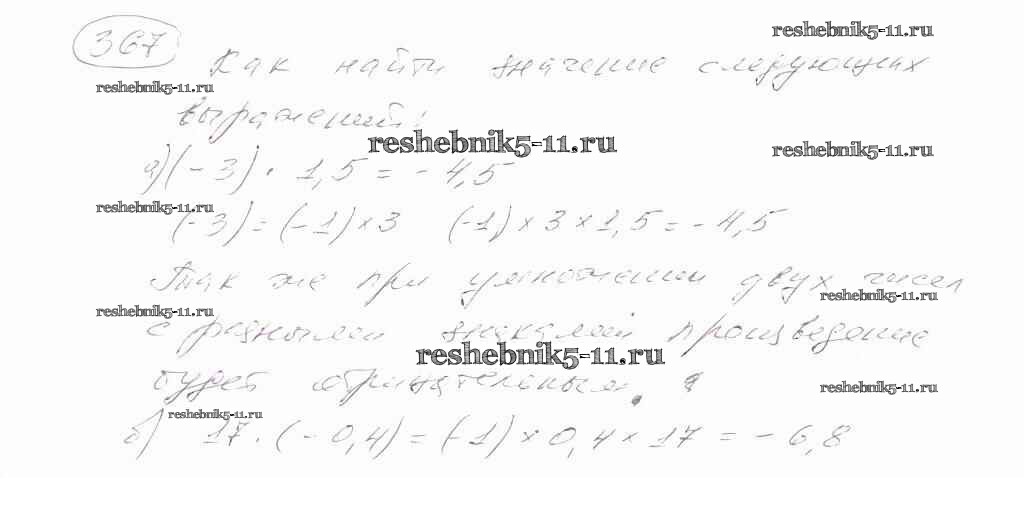 367 reshebnik5-11.ru
Как найти значение следующих
reshebnik5-11.ru
выражений:
reshebnik5-11.ru reshebnik5-11.ru
а) (-3) · 1,5 = -4,5
reshebnik5-11.ru
(-3) = (-1) × 3 (-1) × 3 × 1,5 = -4,5
Так же при умножении двух чисел
reshebnik5-11.ru reshebnik5-11.ru
с разными знаками произведение
reshebnik5-11.ru
будет отрицательным.
reshebnik5-11.ru reshebnik5-11.ru
б) 17 · (-0,4) = (-1) × 0,4 × 17 = -6,8